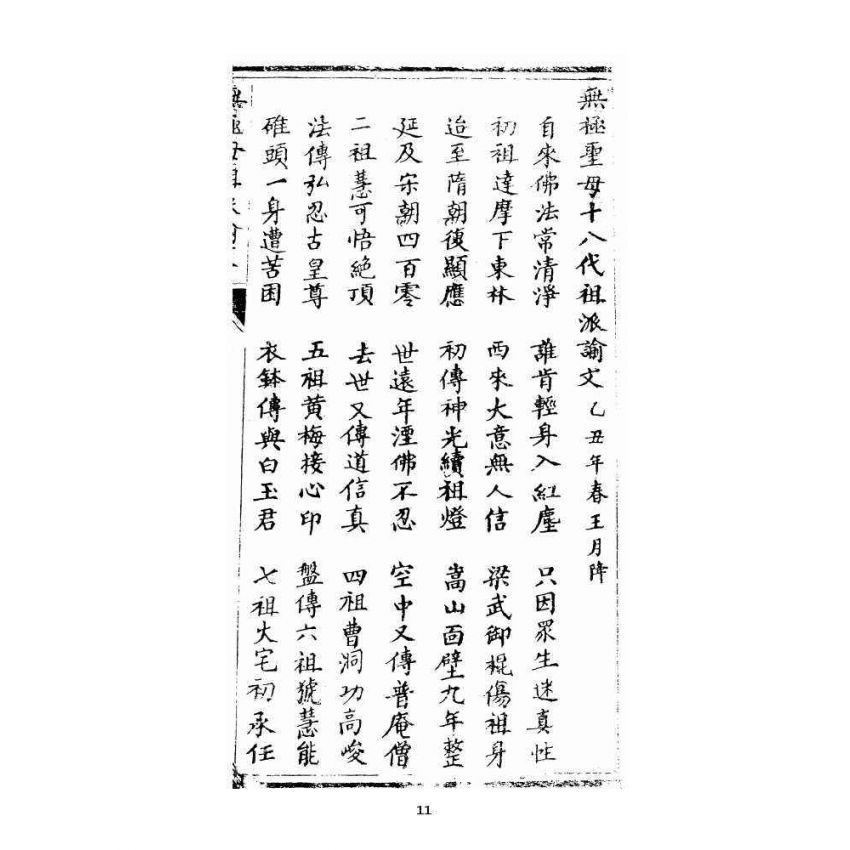 無極聖母十八代祖派諭文 乙丑年春王月降
自來佛法常清淨 誰肯輕身入紅塵 只因眾生迷真性
初祖達摩下東林 西來大意無人信 梁武御棍傷祖身
迨至隋朝復顯應 初傳神光續祖燈 嵩山面壁九年整
延及宋朝四百零 世遠年湮佛不忍 空中又傳普庵僧
二祖慧可悟絶頂 去世又傳道信真 四祖曹洞功高峻
法傳弘忍古皇尊 五祖黄梅接心印 盤傳六祖號慧能
碓頭一身遭苦困 衣鉢傳與白玉君 七祖大宅初承任
無極母祖派諭
11